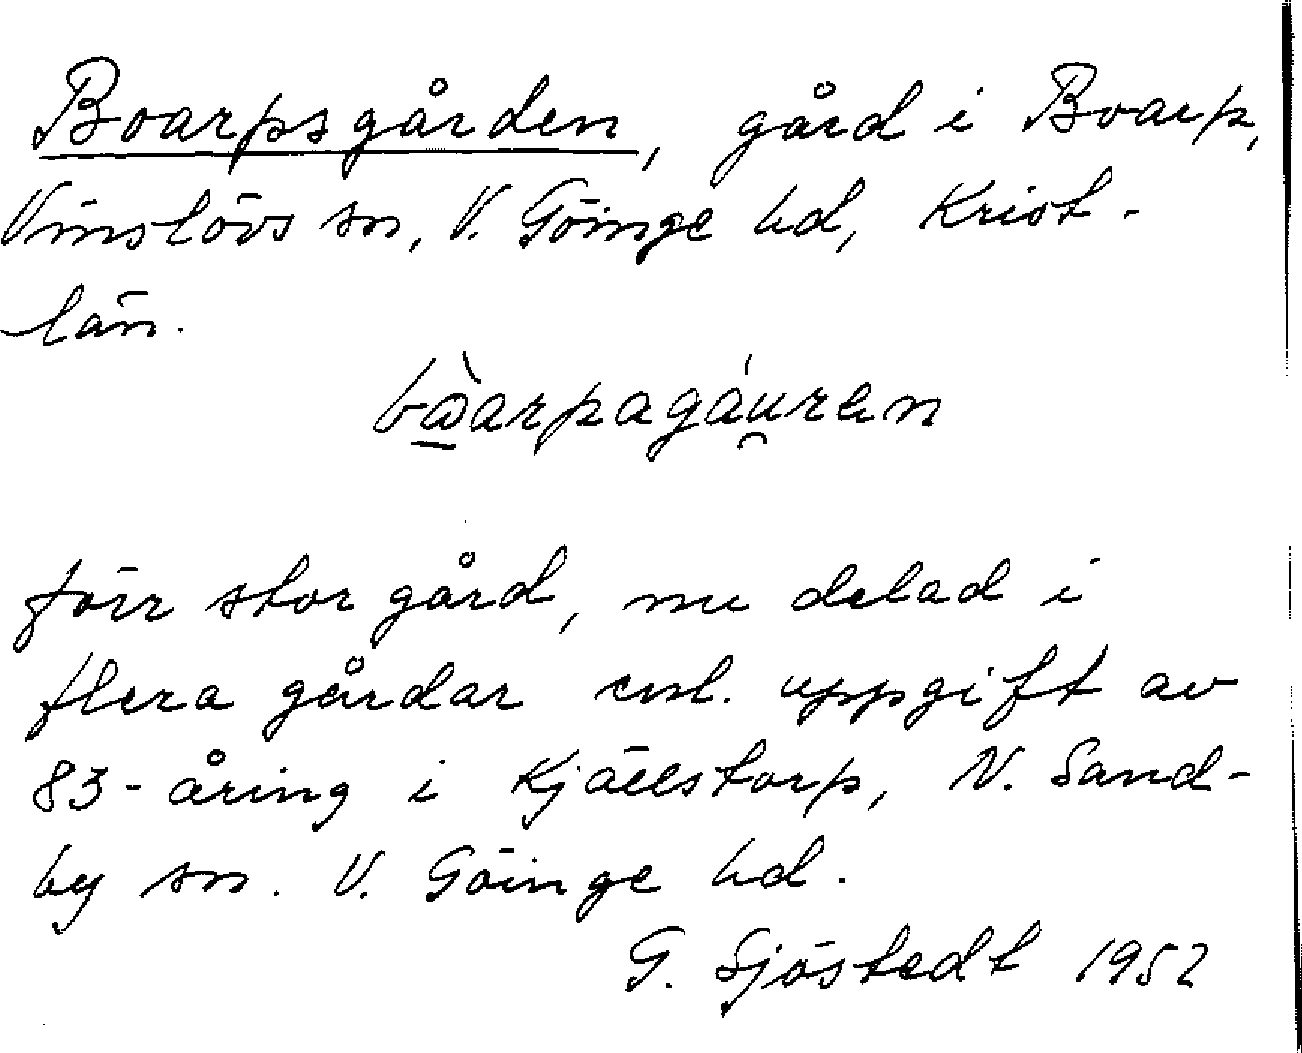 Boarpsgården, gård i Boarp,
Vinslövs sn, V. Göinge hd, Krist-
län.
bòarpagáu̯ren
förr stor gård, nu delad i
flera gårdar enl. uppgift av
83-åring i Kjällstorp, N. Sand-
by sn. V. Göinge hd.
G. Sjöstedt 1952